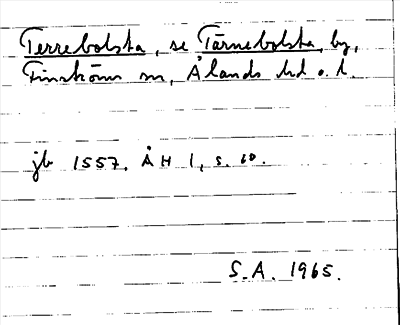 Terrebolsta, se Tärnebolsta, by,
Finström sn, Ålands hd o. l.
jb 1557, ÅH 1, s. 60.
S.A. 1965.